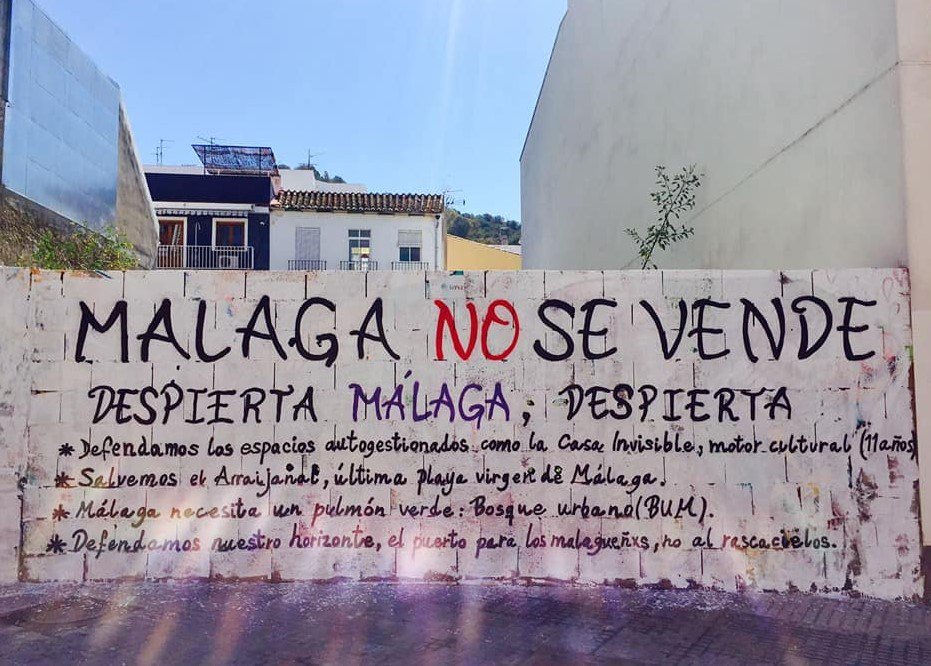 MALAGA NO SE VENDE
DESPIERTA MÁLAGA, DESPIERTA
* Defendamos los espacios autogestionados como la Casa Invisible, motor cultural (11 años
* Salvemos el Arraijanal, última playa virgen de Málaga.
* Málaga necesita un pulmón verde: Bosque urbano (BUM).
* Defendamos nuestro horizonte, el puerto para los malagueñxs, no al rascacielos.